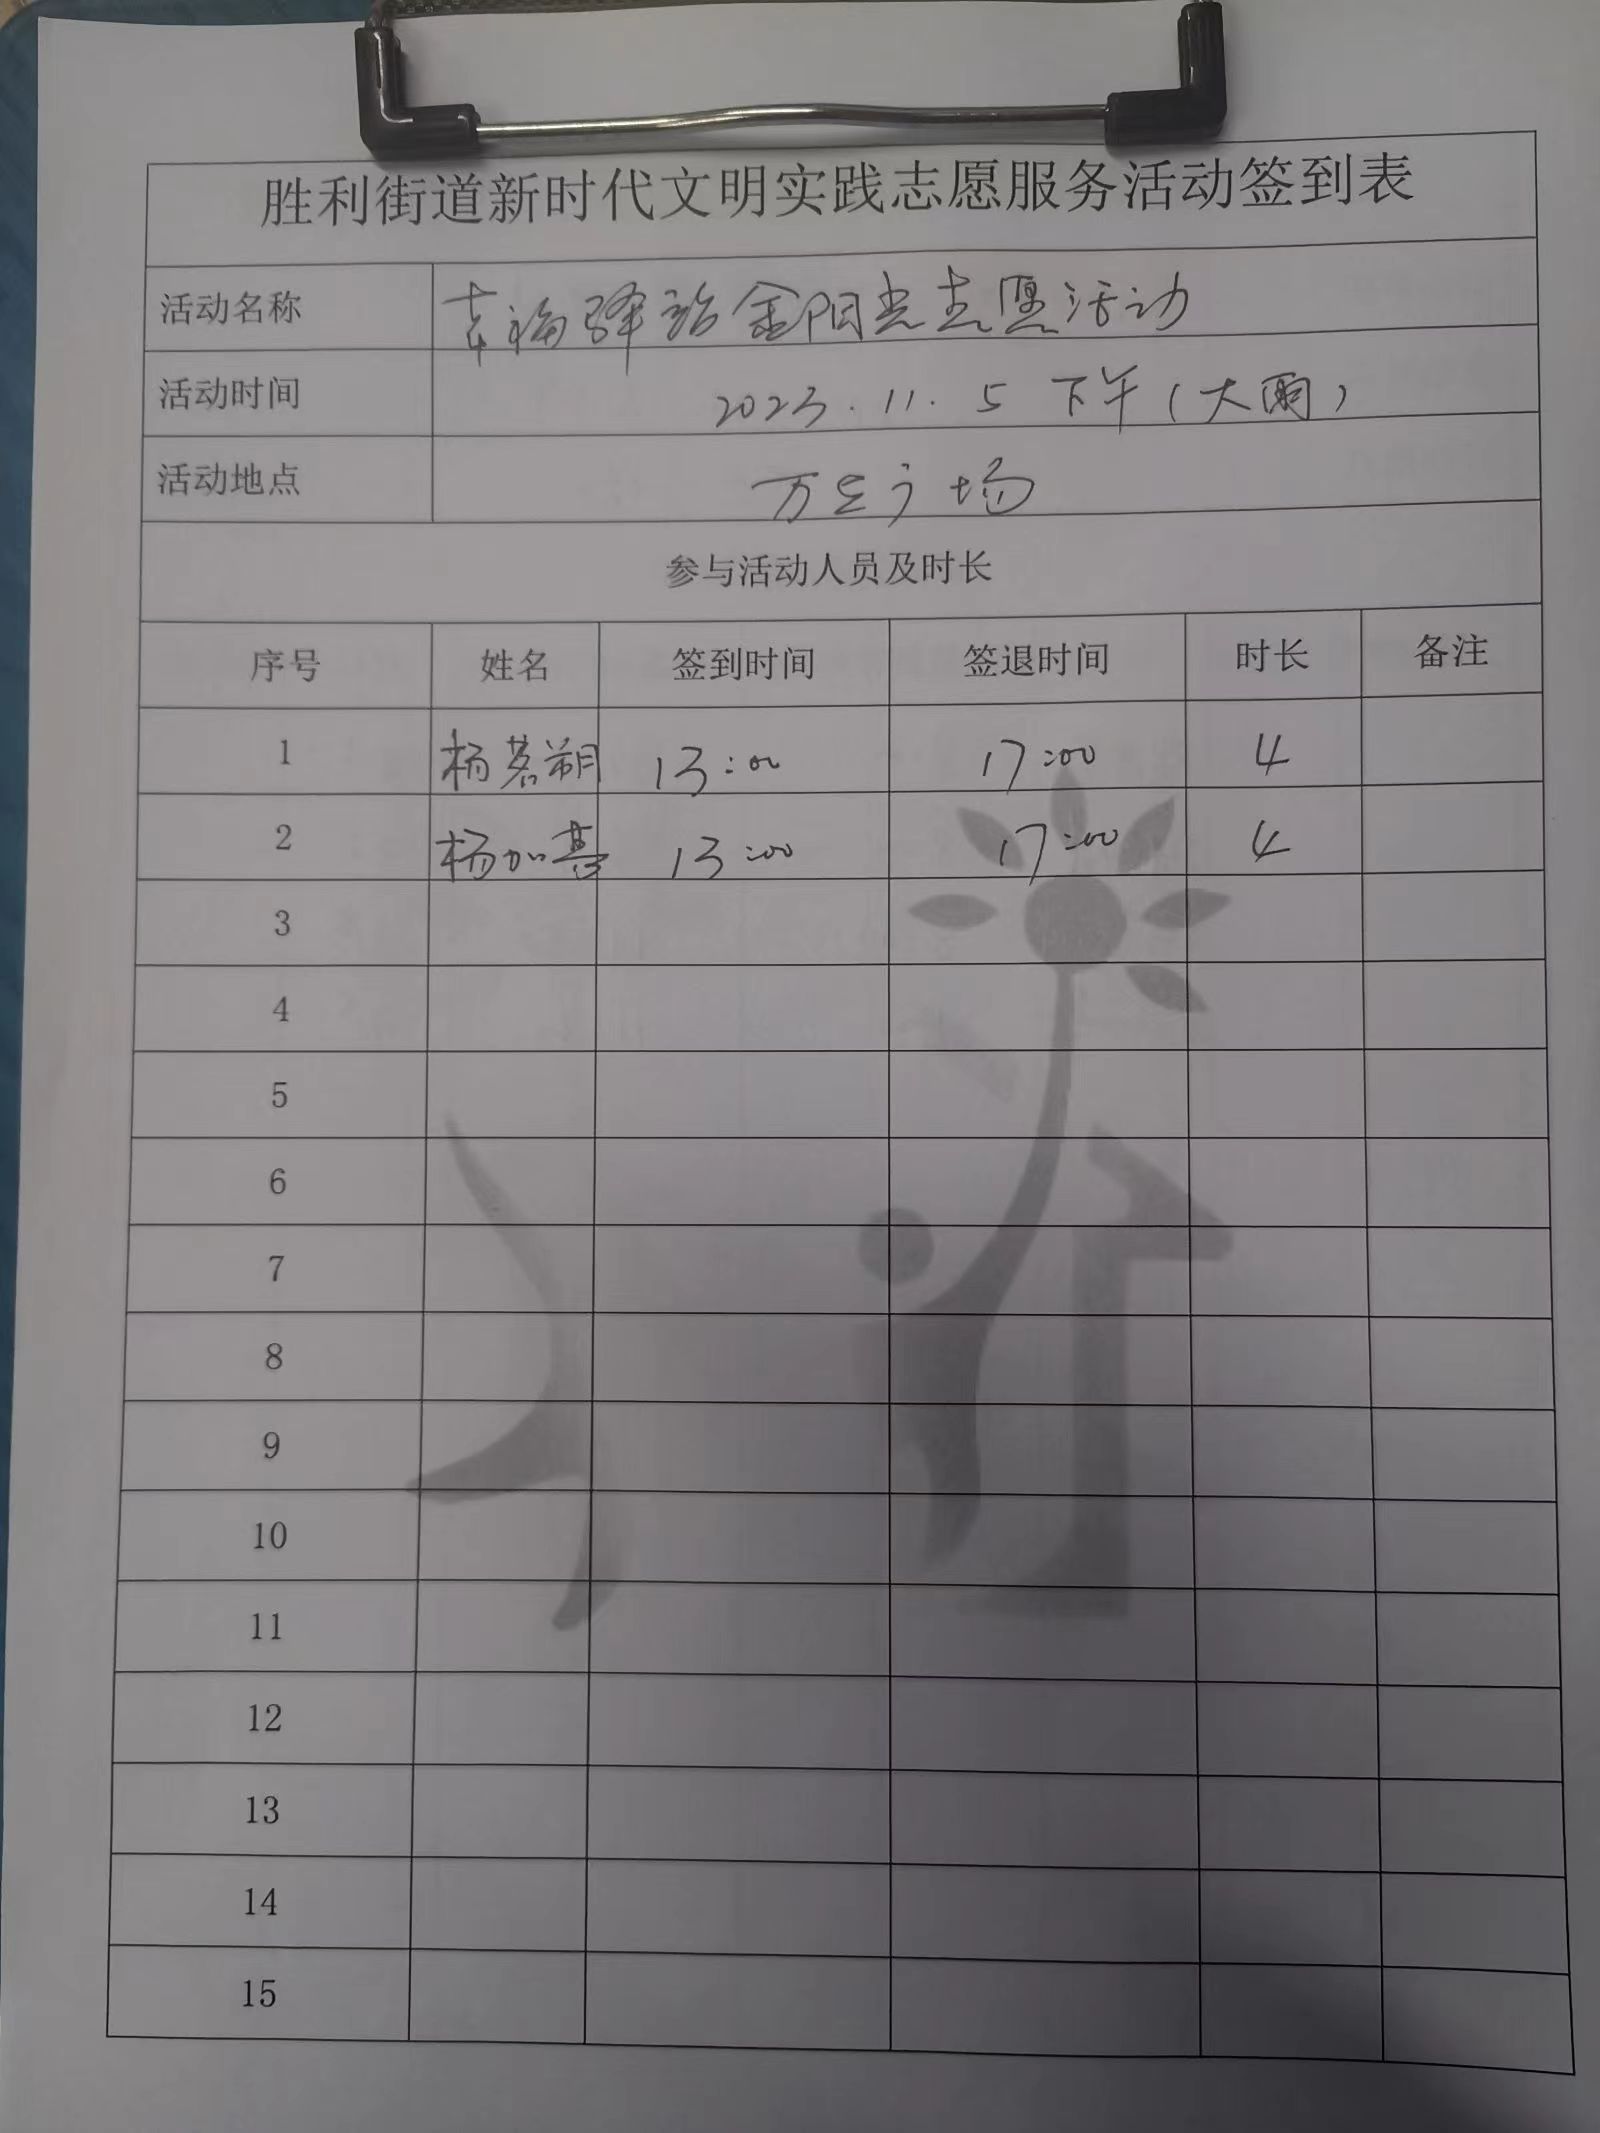 胜利街道新时代文明实践志愿服务活动签到表
活动名称 幸福驿站金阳光志愿活动
活动时间 2023.11.5 下午(大雨)
活动地点 万达广场
参与活动人员及时长
序号 姓名 签到时间 签退时间 时长 备注
1 杨茗朔 13:00 17:00 4
2 杨加 13:00 17:00 4
3
4
5
6
7
8
9
10
11
12
13
14
15